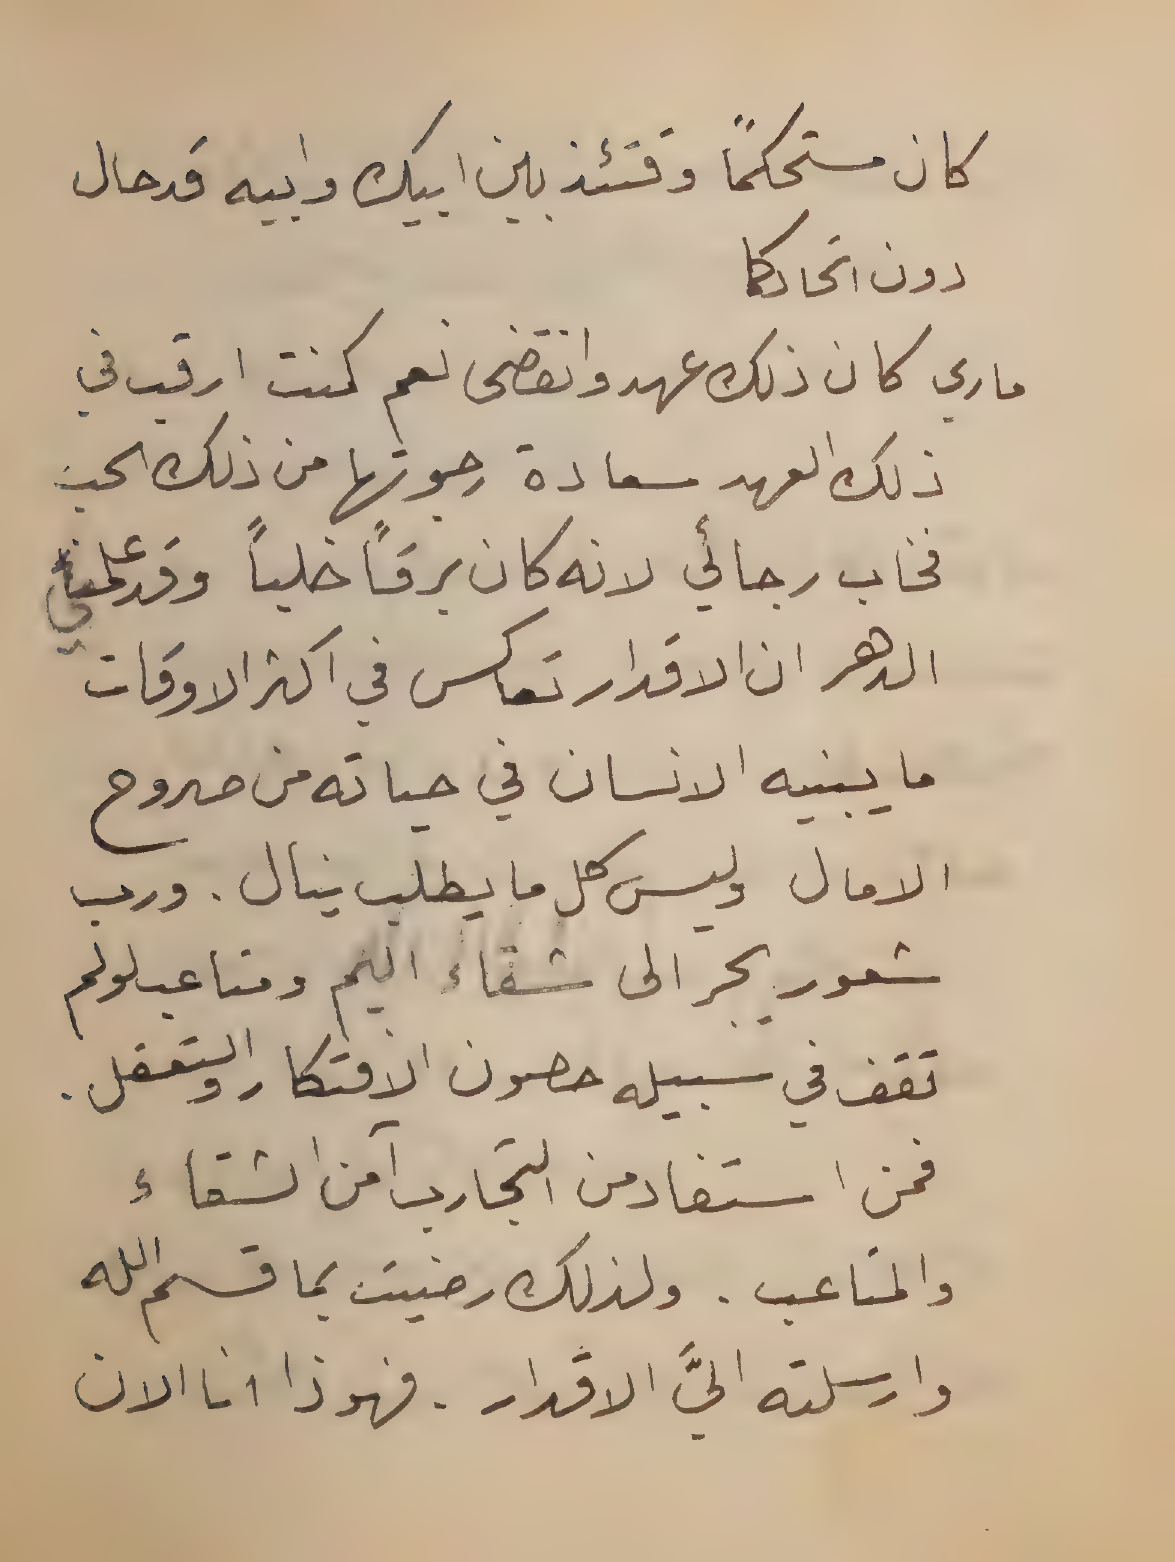 كان مستحكمًا وقتئذ بين ابيك وابيه قد حال
دون اتحادكما
ماري كان ذلك عهد وانقضى نعم كنت ارقب في
ذلك العهد سعادة رجوتها من ذلك الحب
فخاب رجائي لانه كان برقاً خلباً وقد علمني
الدهر ان الاقدار تعاكس في اكثر الاوقات
ما يبنيه الانسان في حياته من صروح
الامال وليس كل ما يطلب ينال . ورب
شعور يجر الى شقاء اليم ومتاعب لو لم
تقف في سبيله حصون الافتكار والتعقل .
فمن استفاد من التجارب آمن الشقاء
والمتاعب . ولذلك رضيت بما قسم الله
وارسلته اليَّ الاقدار . فهوذا انا الان